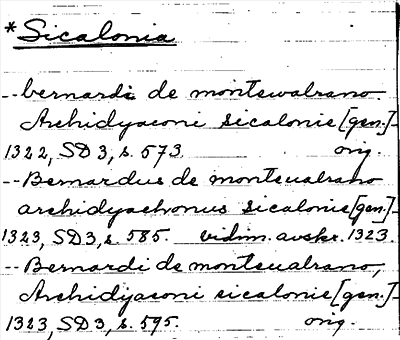 *Sicalonia
--bernardi de montewalrano
Archidyaconi sicalonie[gen.]-
1322, SD3, s. 573. orig.
--Bernardus de monteualrano
archidyachonus sicalonie[gen]-
1323, SD3, s. 585. vidim. avskr. 1323.
--Bernardi de monteualrano,
Archidyaconi sicalonie[gen.]-
1323, SD3, s. 595. orig.